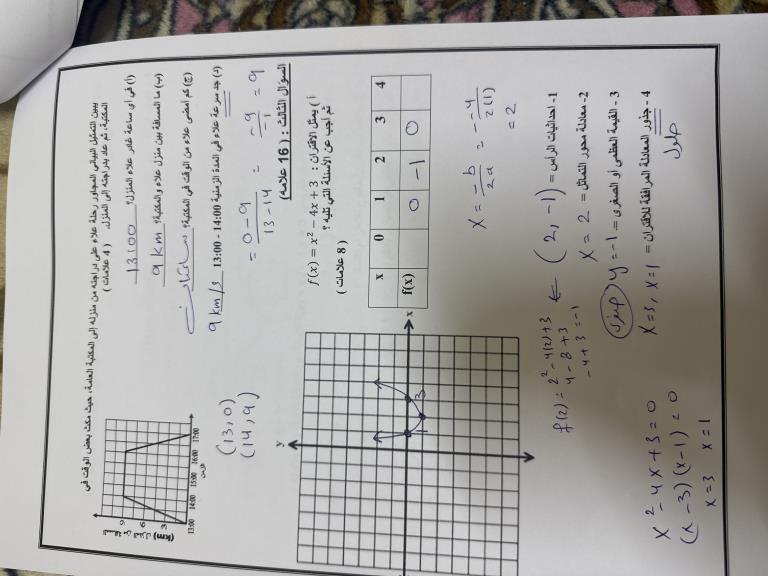 يبين التمثيل البياني المجاور رحلة علاء على دراجته من منزله إلى المكتبة العامة، حيث مكث بعض الوقت في
المكتبة، ثم عاد بدراجته إلى المنزل. ( 4 علامات )
(أ) في أي ساعة غادر علاء المنزل؟ 13:00
(ب) ما المسافة بين منزل علاء والمكتبة؟ 9 km
(ج) كم أمضى علاء من الوقت في المكتبة؟ ساعتان
(د) جد سرعة علاء في المدة الزمنية 14:00 - 13:00
(km)
9
6
3
13:00 14:00 15:00 16:00 17:00
الزمن
(13,0)
(14,9)
= 0-9 / 13-14 = -9 / -1 = 9
السؤال الثالث : ( 16 علامة)
أ ) يمثل الاقتران : f(x) = x² − 4x + 3
ثم أجب عن الأسئلة التي تليه ؟ ( 8 علامات )
x 0 1 2 3 4
f(x) 0 -1 0
y
x
3
x = -b / 2a = - -4 / 2(1)
= 2
1- احداثيات الرأس = (2,-1)
f(2) = 2² - 4(2) + 3
4 - 8 + 3
-4 + 3 = -1
2- معادلة محور التماثل = x = 2
3 - القيمة العظمى أو الصغرى = y = -1 صغرى
4 - جذور المعادلة المرافقة للاقتران = x=3, x=1
حلول
x² - 4x + 3 = 0
(x - 3)(x - 1) = 0
x = 3 x = 1